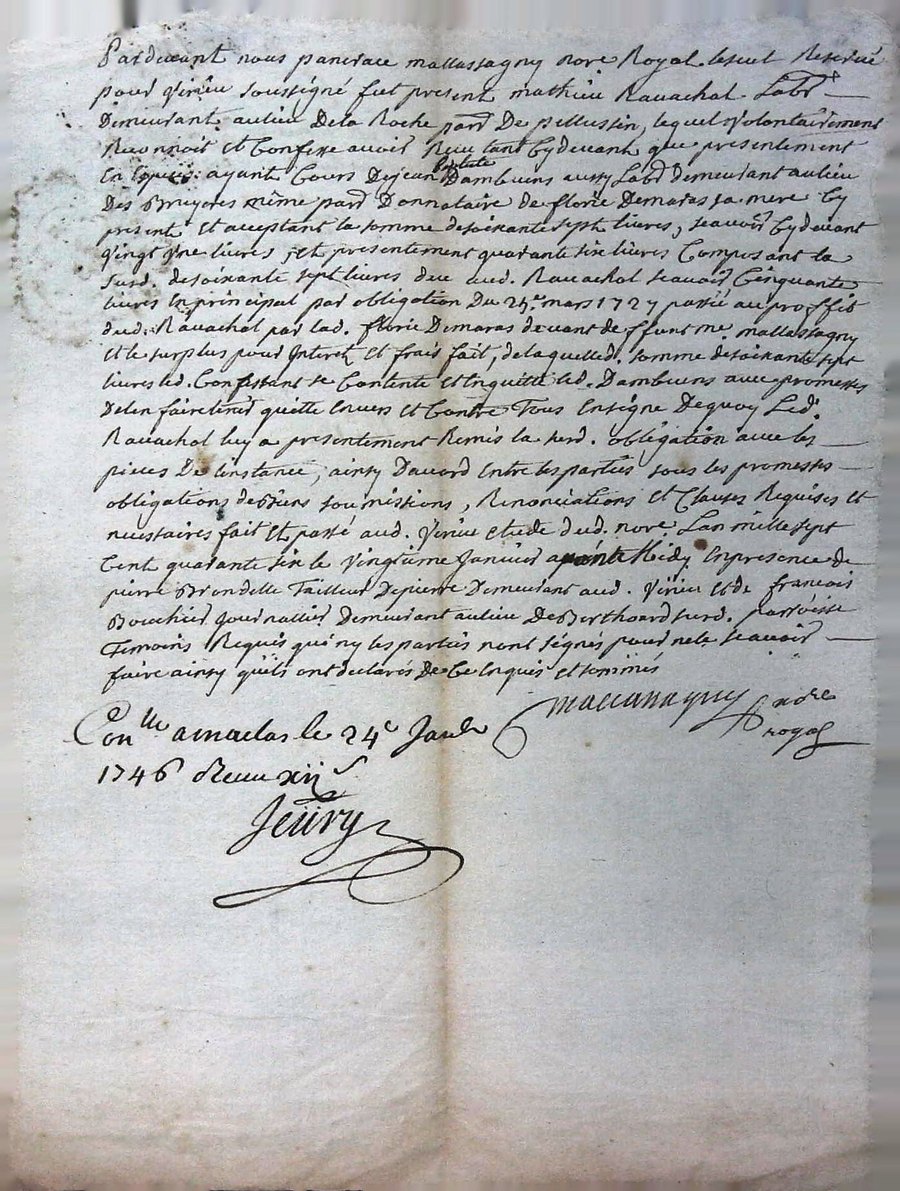 Pardevant nous pancrace mallassagny nore Royal leseul Reservé
pour virieu soussigné fut present mathieu Rauachol Labr
Demeurant aulieu Dela Roche parr De pellussin, lequel volontairement
Reconnoit et Confesse auoir Receu tant Cydeuant que presentement
En Especes ayant Cours Dejean Baptiste Dambuens aussy Labr demeurant aulieu
Des Bruyeres même parr Donnataire de florie Demaras sa mere Cy
present et acceptant la somme desoixante sept liures, scauoir Cydeuant
vingt une liures, et presentement quarante six liures Composant la
susd. desoixante sept liures due aud. Rauachol scauoir Cinquante
liures En principal par obligation Du 24e mars 1727 passée au proffit
dud. Rauachol par lad. florie Demaras deuant deffunt me mallassagny
et le surplus pour Interet et frais fait, delaquelled. somme desoixante sept
liures led. Confessant se Contente et Enquitte led. Dambuens auec promesses
Delen fairetenir quitte Enuers et Contre Tous Ensigne Dequoy Led.
Rauachol luy a presentement Remis la susd. obligation auec les
pieces De linstance, ainsy Dacord Entre les parties sous les promesses
obligations de Biens soumissions, Renonciations et Clauses Requises et
necessaires fait et passé aud. Virieu etude dud. nore Lan mille sept
Cent quarante six le vingtieme Januier auant Midy Enpresence de
pierre Brondelle Tailleur Depierre Demeurant aud. Virieu et de francois
Bouchier Journallier Demeurant aulieu De Berthoard susd. parroisse
Temoins Requis qui ny les parties nont signés pour nele scauoir
faire ainsy quils ont declarés De Ce Enquis et sommés
mallassagny nore
royal
Conlle amaclas le 24e Janer
1746 Receu xij s
Jeüry